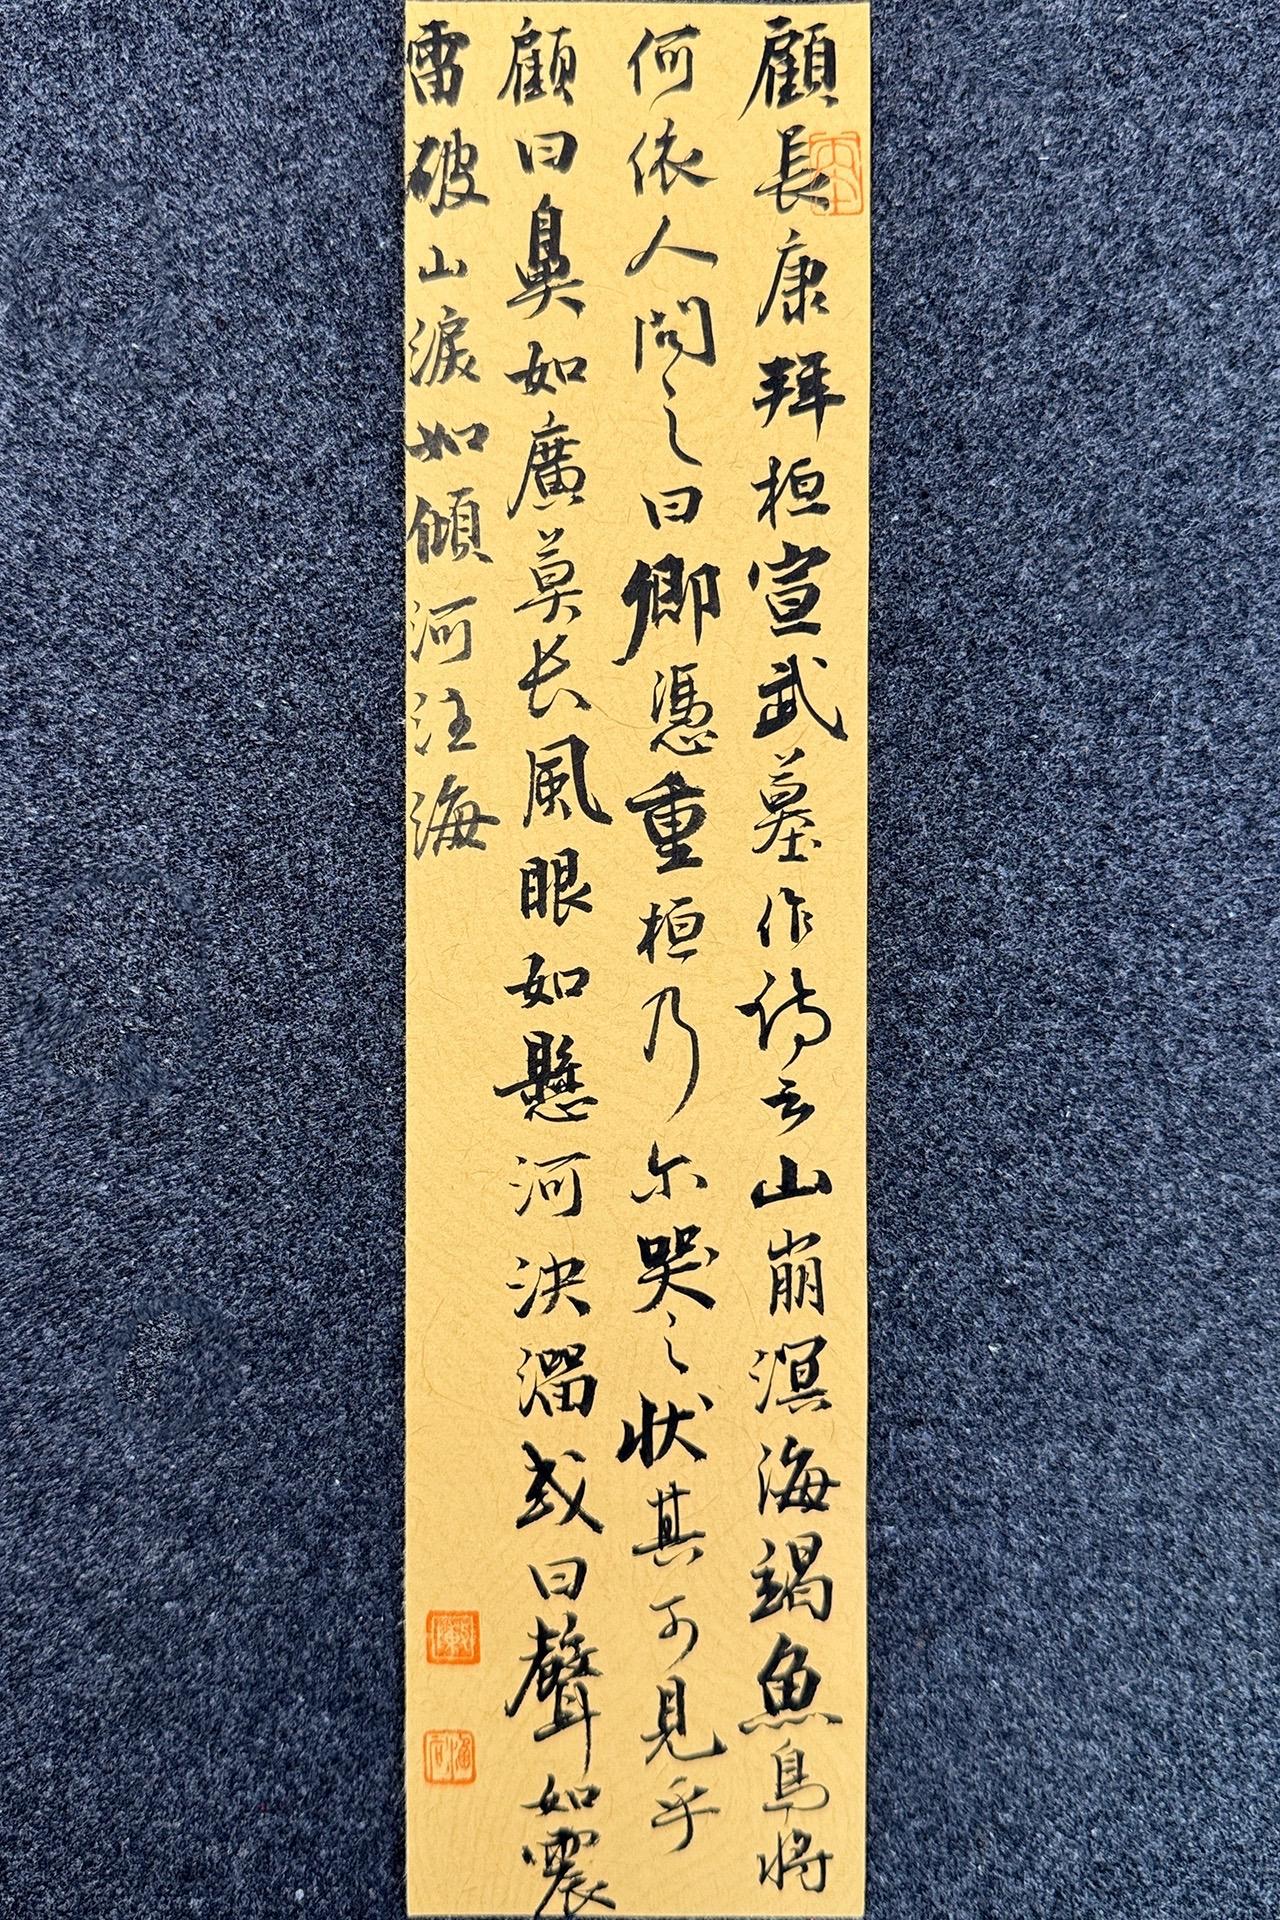 顧長康拜桓宣武墓作詩云山崩溟海竭魚鳥將
何依人問之曰卿憑重桓乃尔哭之狀其可見乎
顧曰鼻如廣莫长風眼如懸河決溜或曰聲如震
雷破山淚如傾河注海